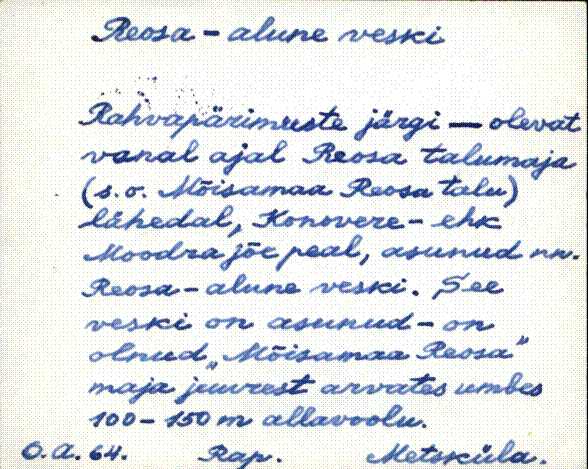 Reosa - alune veski
Rahvapärimuste järgi — olevat
vanal ajal Reosa talumaja
(s.o. Mõisamaa Reosa talu)
lähedal, Konovere - ehk
Moodra jõe peal, asunud nn.
Reosa - alune veski. See
veski on asunud - on
olnud „Mõisamaa Reosa”
maja juurest arvates umbes
100 - 150 m allavoolu.
O.A. 64. Rap. Metsküla.